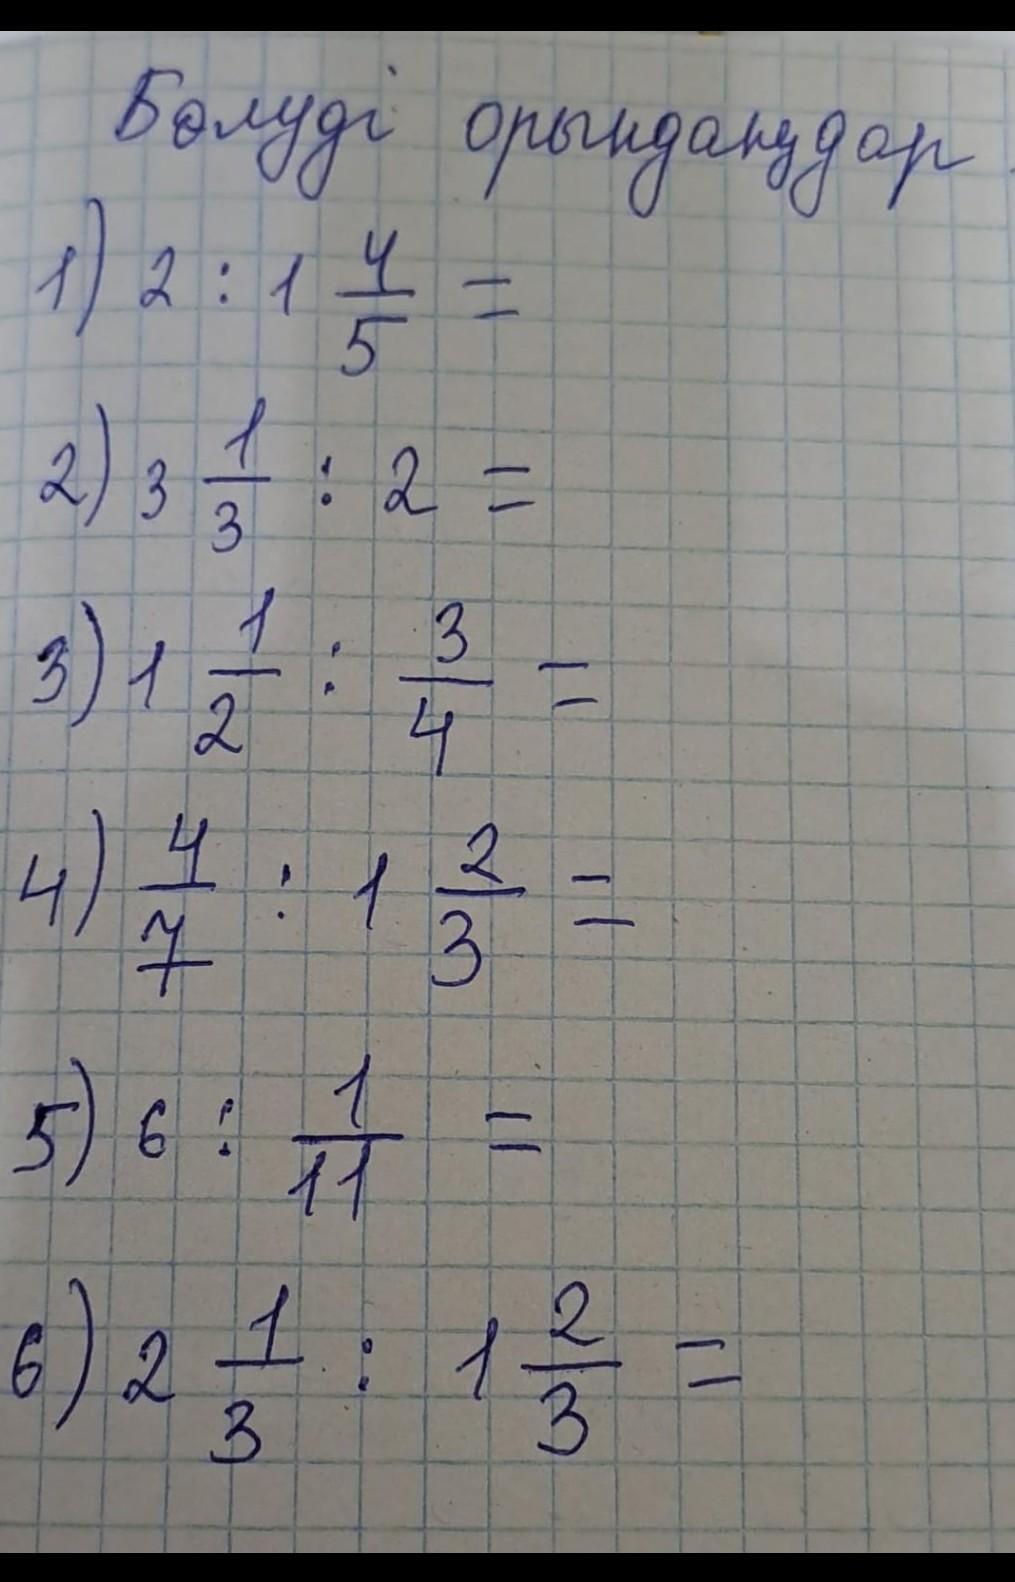 Бөлуді орынданудар.
1) 2 : 1 4/5 =
2) 3 1/3 : 2 =
3) 1 1/2 : 3/4 =
4) 4/7 : 1 2/3 =
5) 6 : 1/11 =
6) 2 1/3 : 1 2/3 =